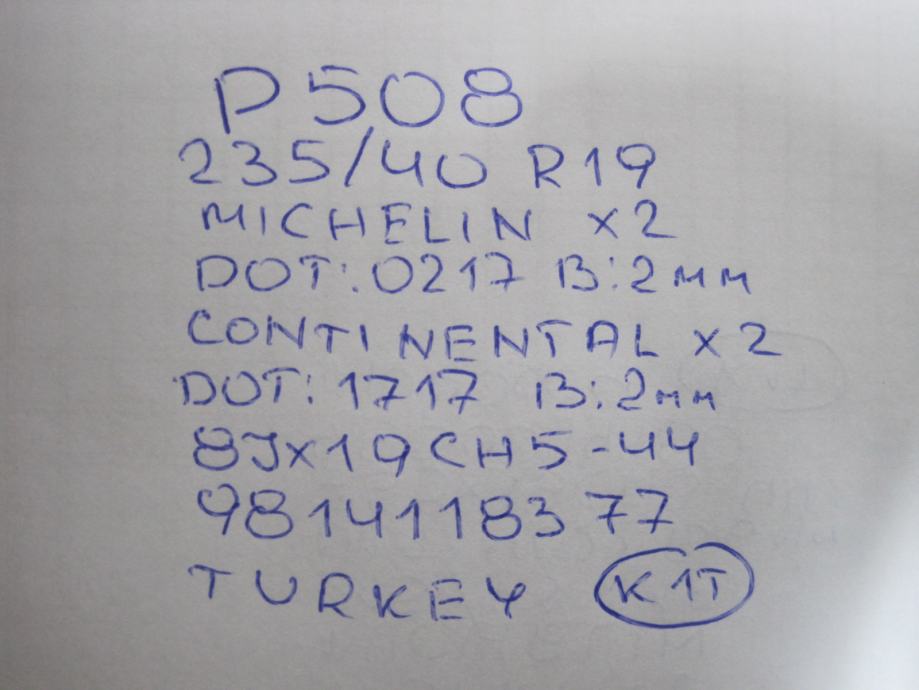 P508
235/40 R19
MICHELIN x2
DOT:0217 B:2мм
CONTINENTAL x2
DOT:1717 B:2мм
8Jx19CH5-44
9814118377
TURKEY K1T